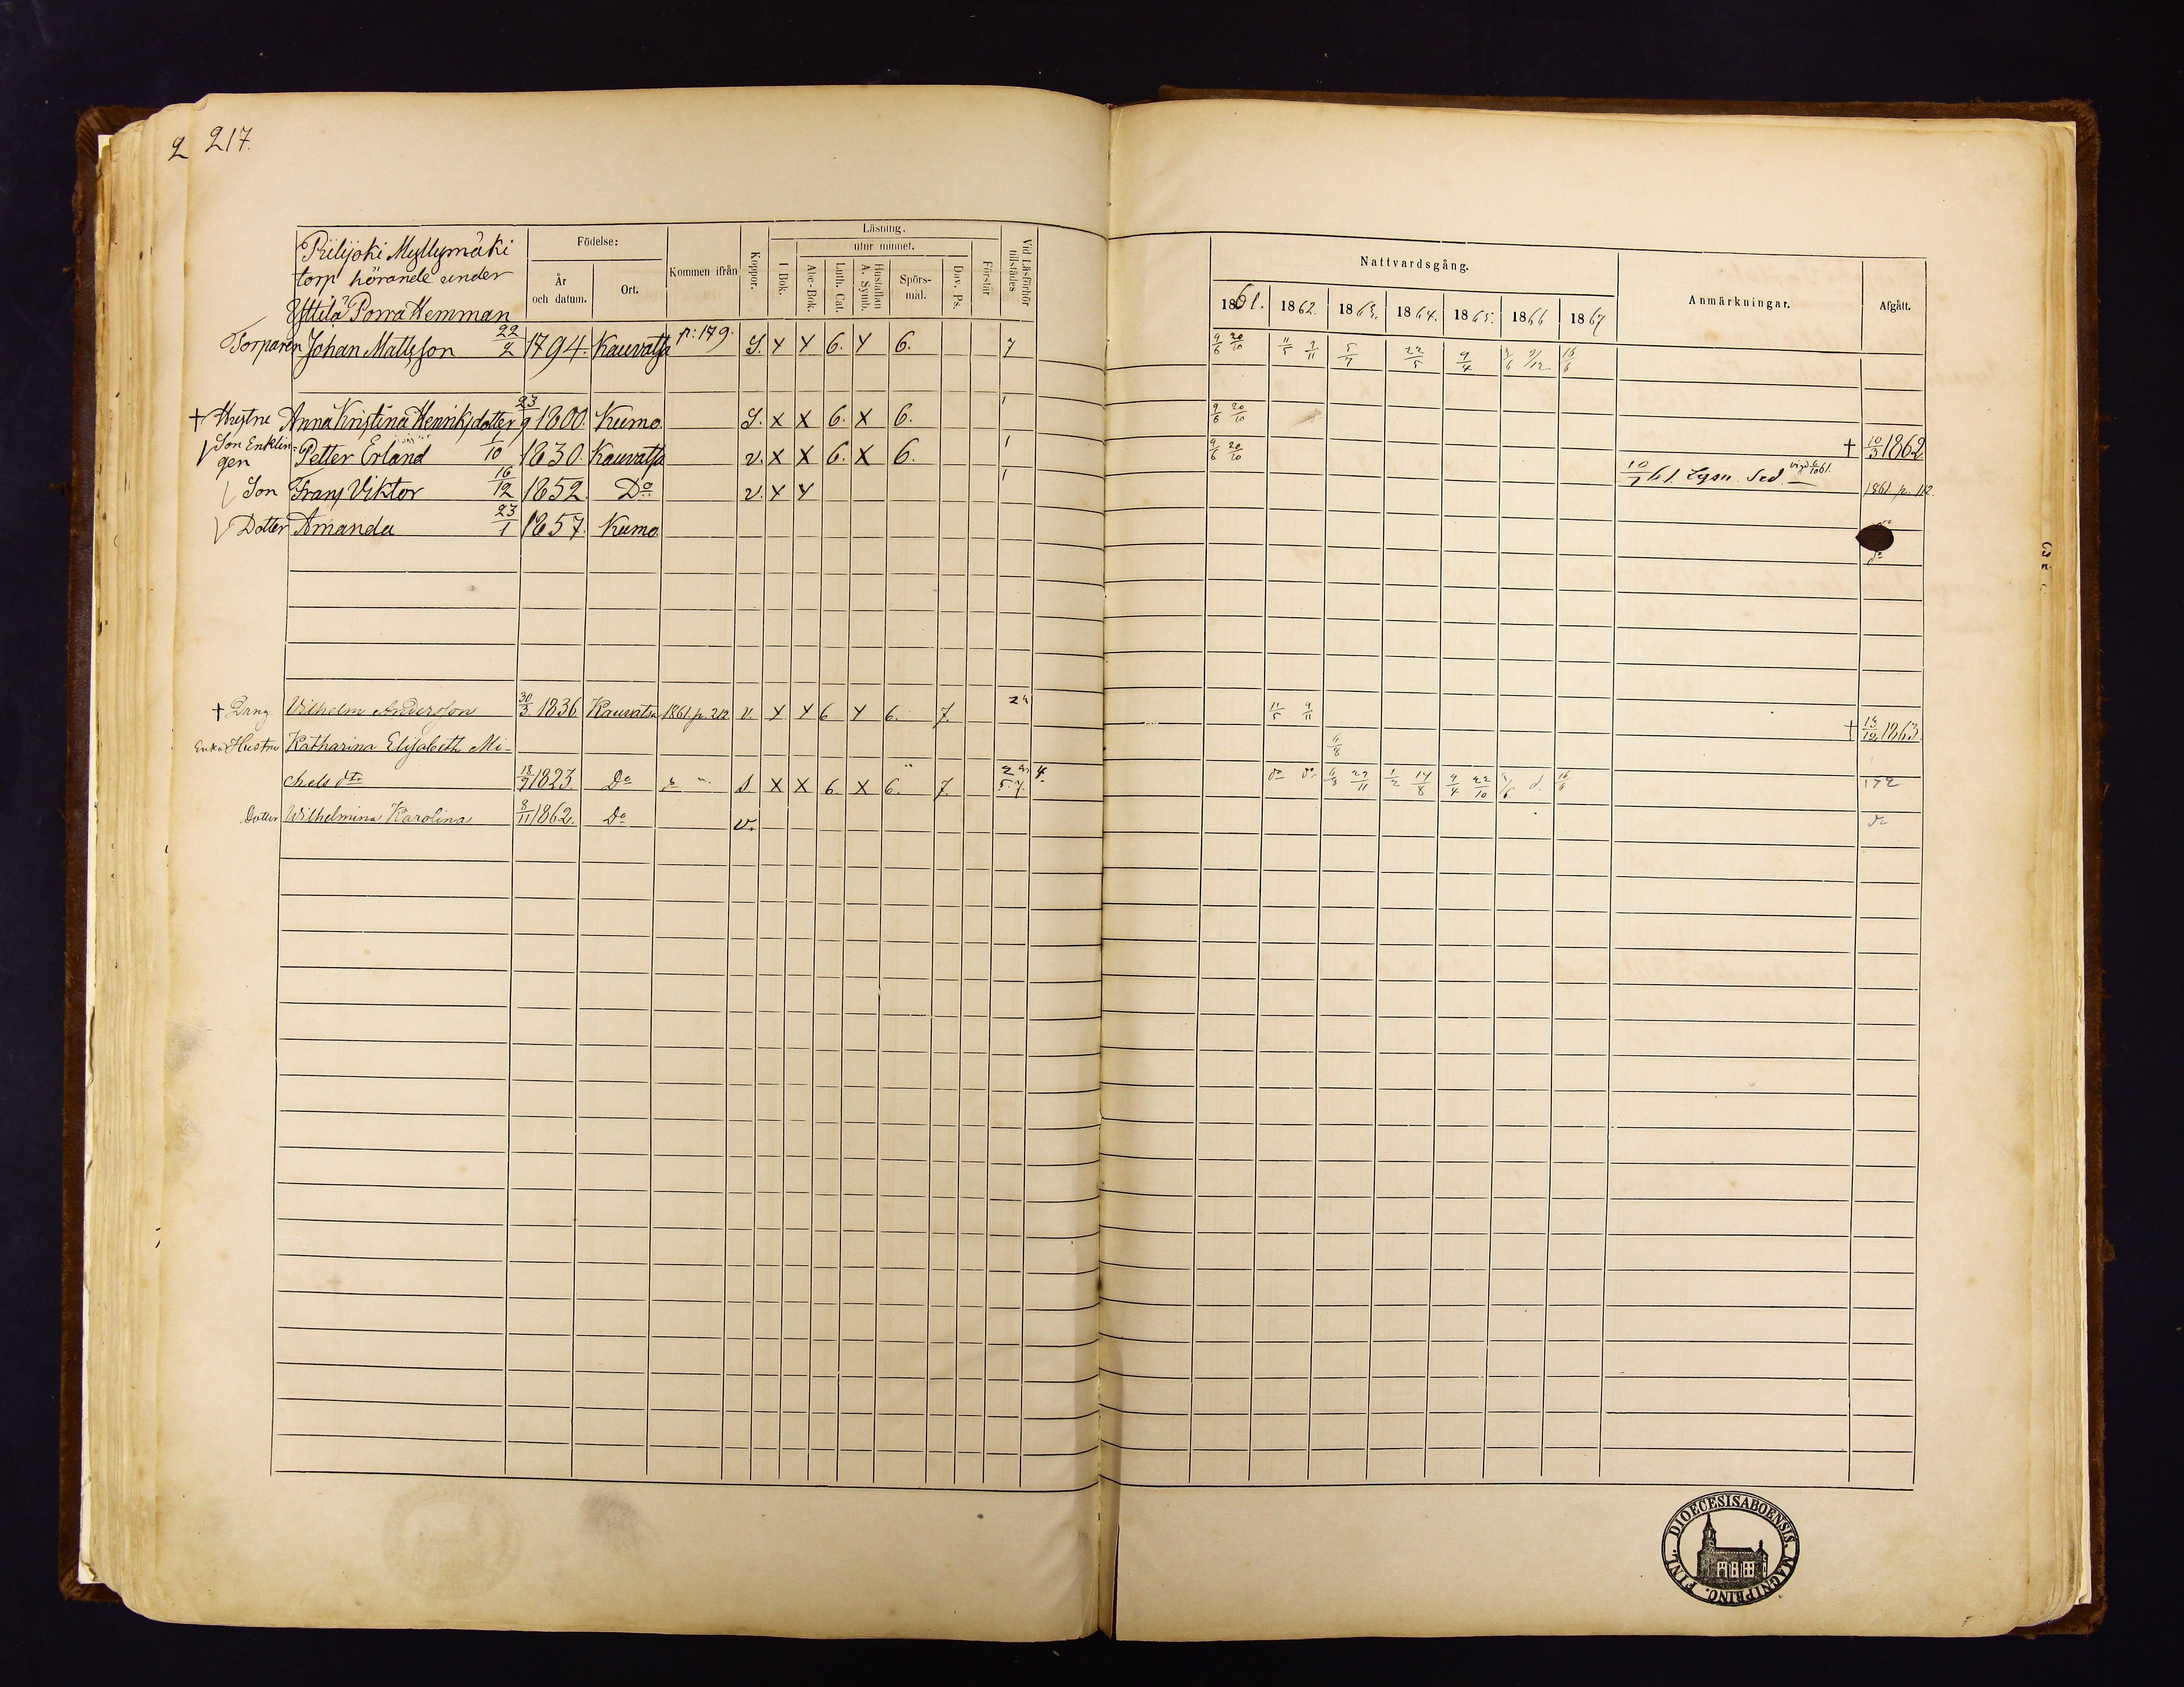 2 217.
Piilijoki Myllymäki
torp hörande under
Yttilä Porra Hemman
Födelse:
År
och datum.
Ort.
Kommen ifrån
Koppor.
Läsning,
utur minnet.
I Bok.
Abc-Bok.
Luth. Cat.
Hustaflan
A. Symb.
Spörs-
mål.
Dav. Ps.
Förstår
Vid Läsförhör
tillstädes
Nattvardsgång.
1861. 1862. 1863. 1864. 1865. 1866 1867
Anmärkningar.
Afgått.
Torparen Johan Mattsson 22/2 1794. Kauvatsa p: 179. S. x x 6. x 6. 7 9/6 20/10 11/5 5/7 22/5 9/4 9/12 16/6
† Hustru Anna Kristina Henriksdotter 23/9 1800. Kumo S. X X 6. X 6. 1 9/6 20/10 † 10/3 1862
Son Enklin-
gen Petter Erland 1/10 1830 Kauvatsa v. X X 6. X 6. 1 9/6 20/10 10/7 61 Lysn. Sed. vigd 6/10 61. 1861 p. 112.
Son Frans Viktor 16/12 1852. Do v. x x 1
Dotter Amanda 23/1 1857. Kumo do
† Drng. Vilhelm Andersson 30/3 1836 Kauvatsa 1861 p. 212 v. x x 6 x 6. 7. 2 11/5 9/11 † 13/12 1863.
Enka Hustru Katharina Elisabeth Mi- 6/8
chels dtr 18/9 1823. Do do S X X 6. X 6. 7. 2 4. 5. 7. do do 6/8 29/11 1/2 14/8 9/4 22/10 16/6 172
Dotter Wilhelmina Karolina 8/11 1862. Do v. do
DIOECESIS ABOENSIS. MAGNI PRINC. FINL.